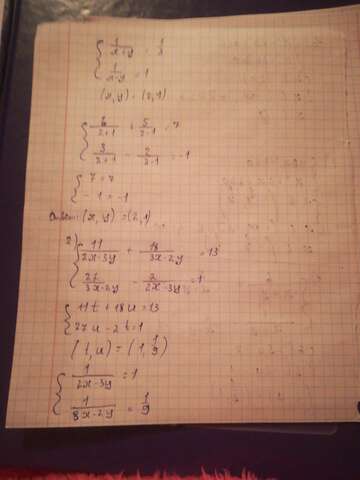 { 1/(x+y) = 1/3
{ 1/(x-y) = 1
(x, y) = (2, 1)
{ 6/(2+1) + 5/(2-1) = 7
{ 3/(2+1) - 2/(2-1) = -1
{ 7 = 7
{ - 1 = -1
Ответ: (x, y) = (2, 1)
2) { 11/(2x-3y) + 18/(3x-2y) = 13
{ 27/(3x-2y) - 2/(2x-3y) = 1
{ 11t + 18u = 13
{ 27u - 2t = 1
(t, u) = (1, 1/9)
{ 1/(2x-3y) = 1
{ 1/(3x-2y) = 1/9